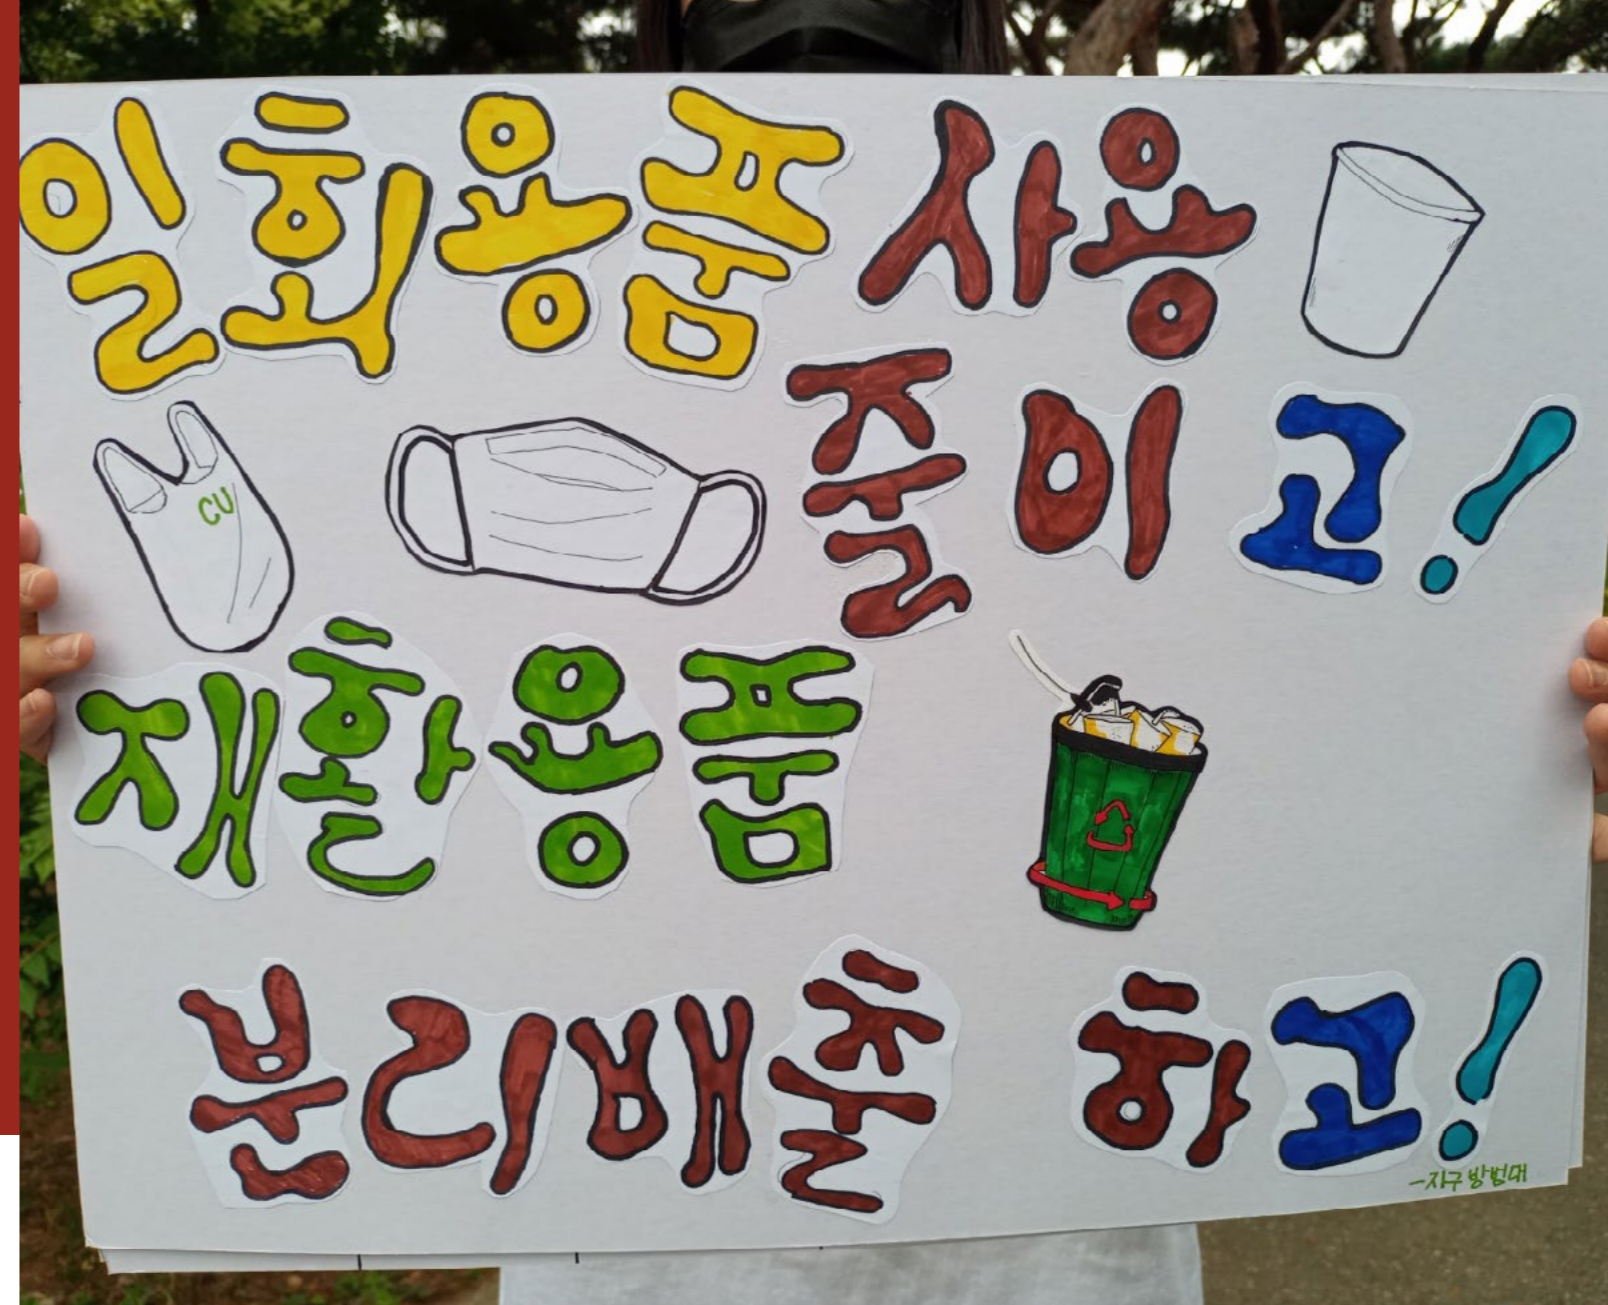 일회용품 사용
CU
줄이고!
재활용품
분리배출 하고!
-지구방범대